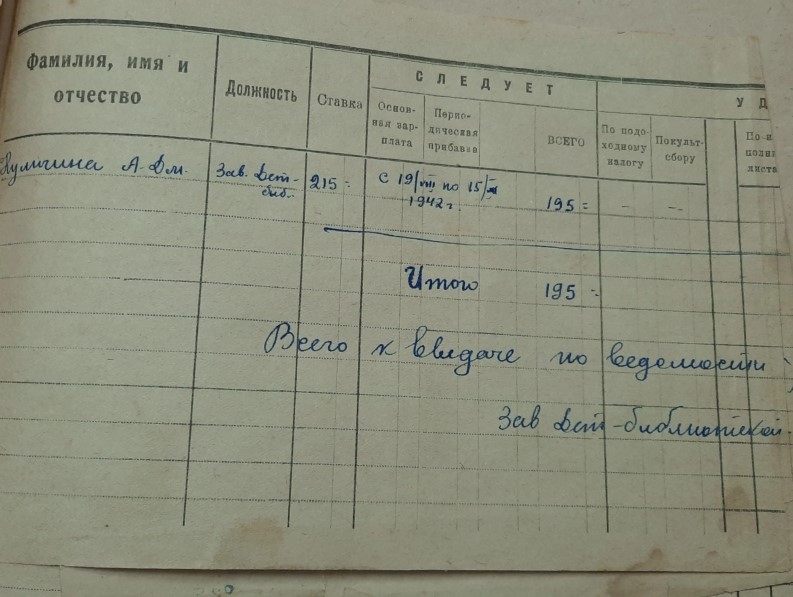 СЛЕДУЕТ
У Д
Фамилия, имя и отчество
Должность
Ставка
Основ-
ная зар-
плата
Перио-
дическая
прибавка
ВСЕГО
По подо-
ходному
налогу
По культ-
сбору
По и
полни
листа
Куличина А. Дм.
Зав. Дет-
биб.
215 =
с 19/VIII по 15/
1942 г.
195 =
-
--
Итого 195 =
Всего к выдаче по ведомости
Зав Дет-библиотекой.